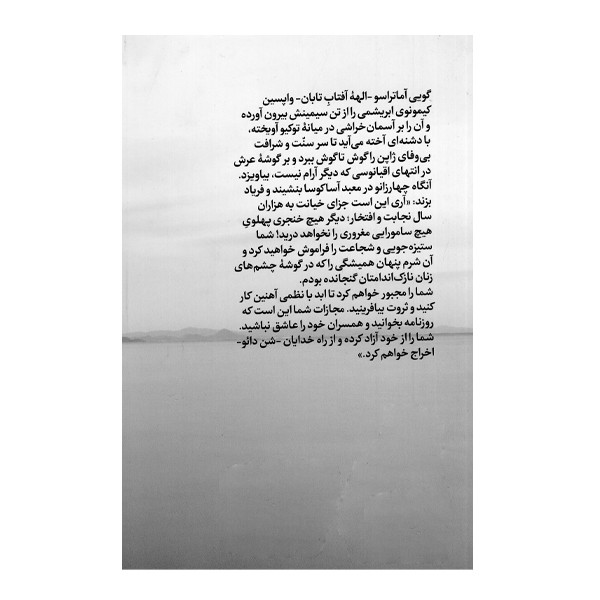 گویی آماتراسو -الههٔ آفتابِ تابان- واپسین
کیمونوی ابریشمی را از تن سیمینش بیرون آورده
و آن را بر آسمان‌خراشی در میانهٔ توکیو آویخته،
با دشنه‌ای آخته می‌آید تا سر سنّت و شرافت
بی‌وفای ژاپن را گوش تا گوش ببرد و بر گوشهٔ عرش
در انتهای اقیانوسی که دیگر آرام نیست، بیاویزد.
آنگاه چهارزانو در معبد آساکوسا بنشیند و فریاد
بزند: «آری این است جزای خیانت به هزاران
سال نجابت و افتخار؛ دیگر هیچ خنجری پهلویِ
هیچ سامورایی مغروری را نخواهد درید! شما
ستیزه‌جویی و شجاعت را فراموش خواهید کرد و
آن شرم پنهان همیشگی را که در گوشهٔ چشم‌های
زنان نازک‌اندامتان گنجانده بودم.
شما را مجبور خواهم کرد تا ابد با نظمی آهنین کار
کنید و ثروت بیافرینید. مجازات شما این است که
روزنامه بخوانید و همسران خود را عاشق نباشید.
شما را از خود آزاد کرده و از راه خدایان -شن دائو-
اخراج خواهم کرد.»